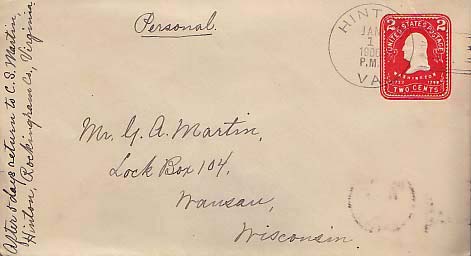 After 5 days return to C. S. Martin,
Hinton, Rockingham Co, Virginia
Personal.
HINTON
JAN
1
1906
P.M.
VA.
UNITED STATES POSTAGE
2 2
WASHINGTON
1732 1799
TWO CENTS
Mr. G. A. Martin,
Lock Box 104,
Wausau,
Wisconsin.